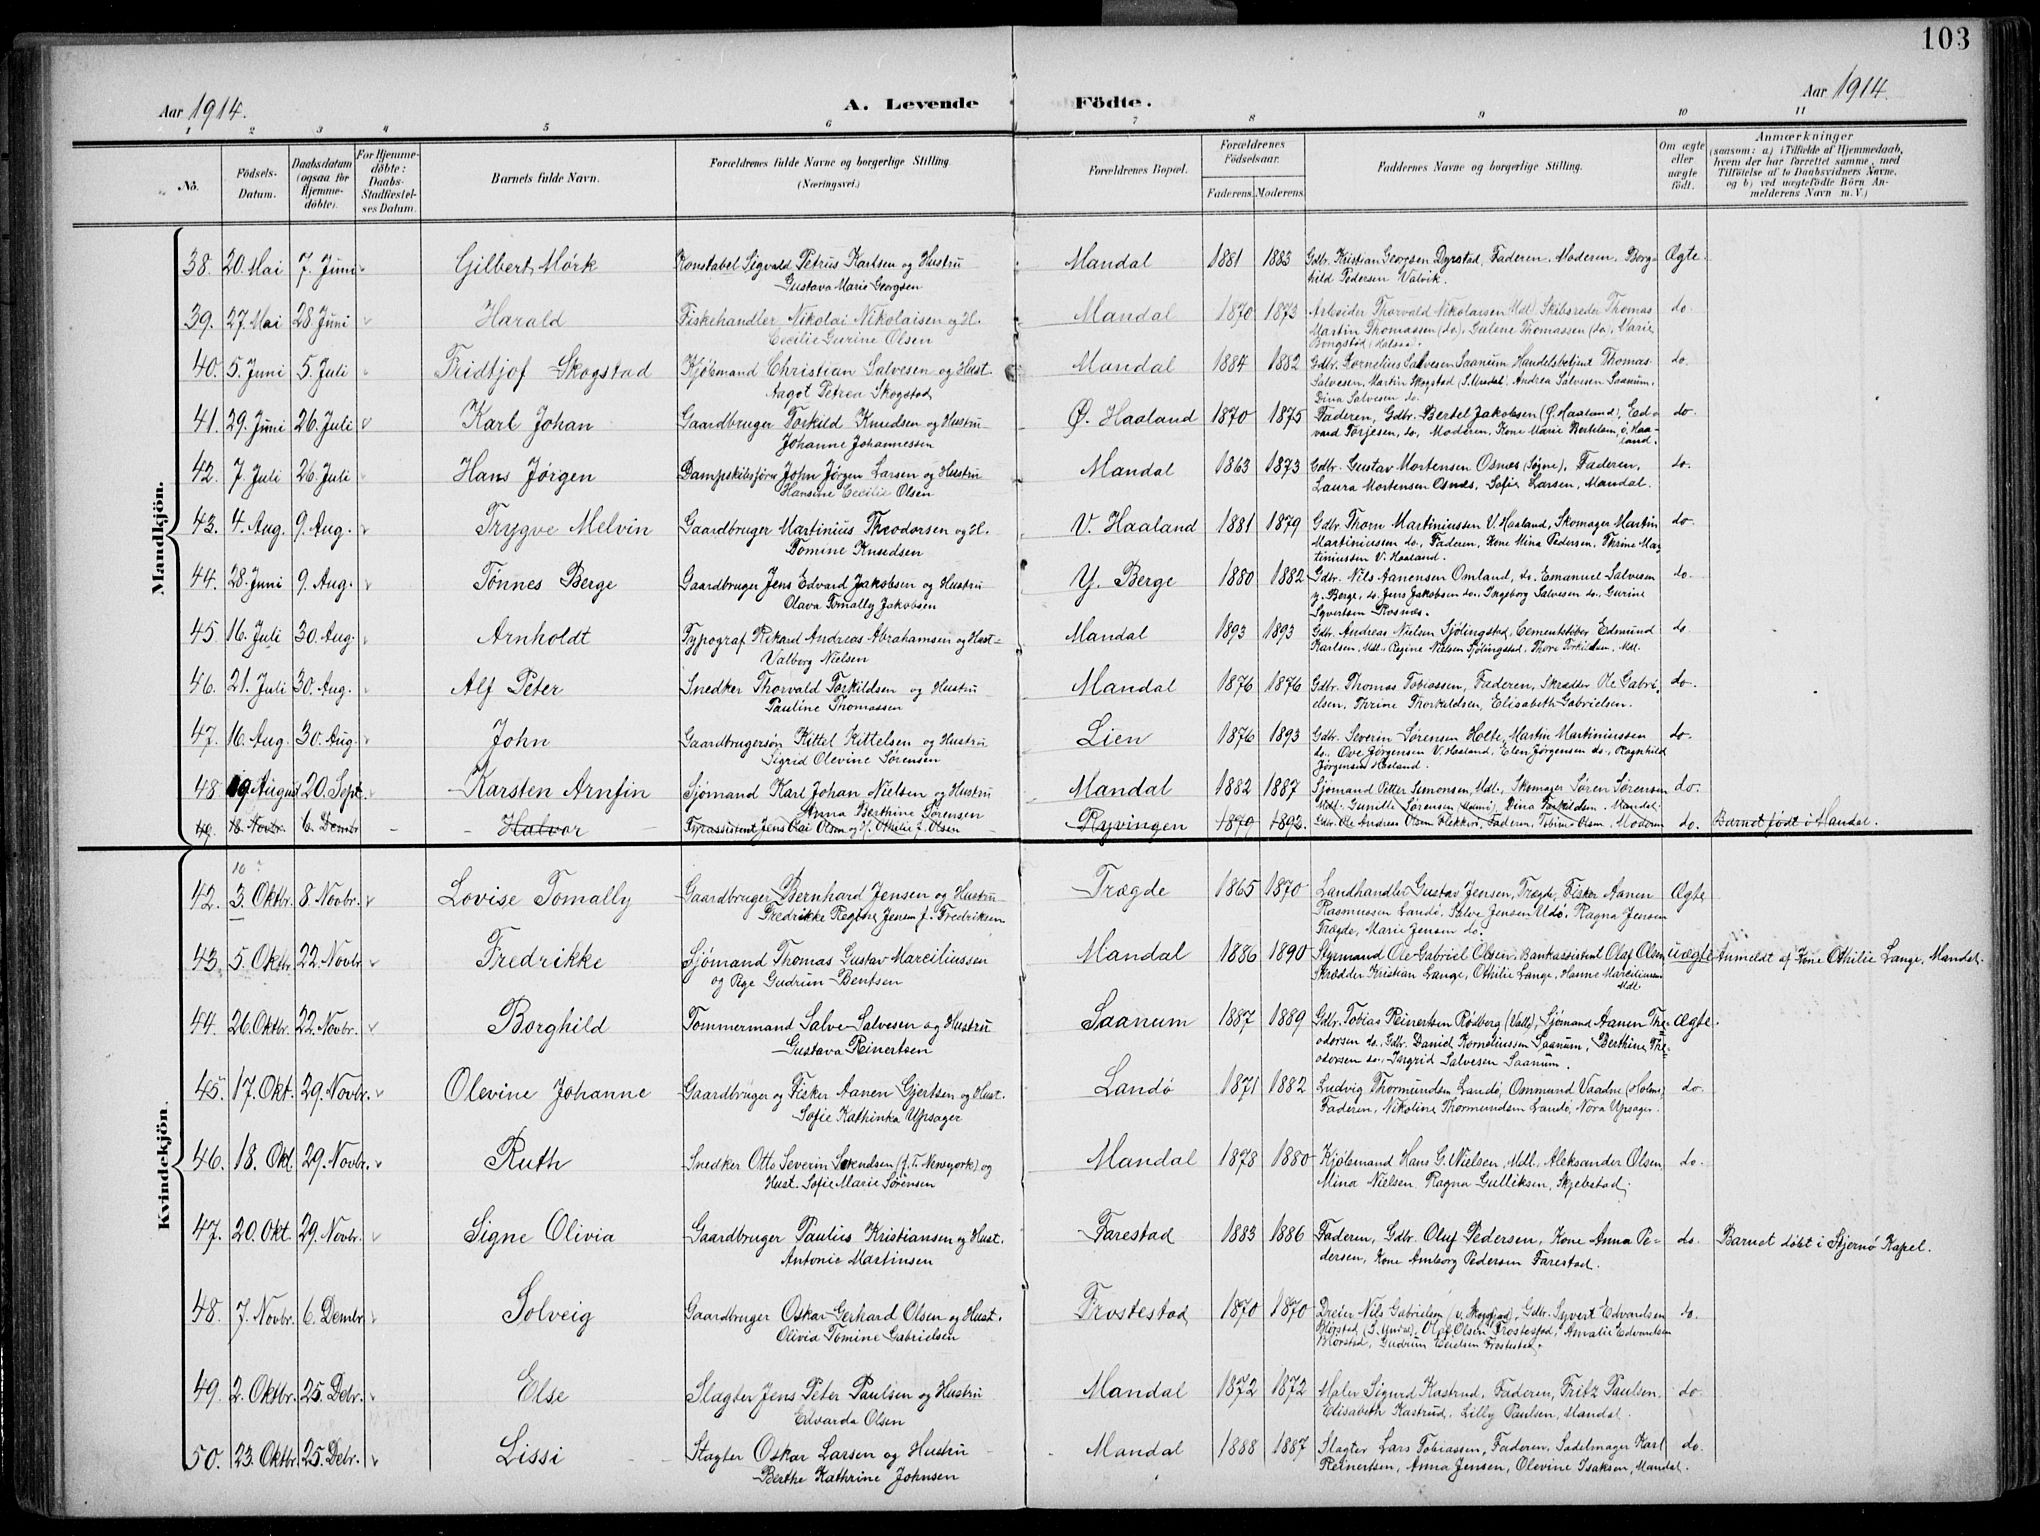 103
Aar 1914.
A. Levende Födte.
Aar 1914.
1 2 3 4 5 6 7 8 9 10 11
No. Födsels-Datum. Daabsdatum (ogsaa for Hjemme-döbte). For Hjemme-döbte: Daabs-Stadfæstel-ses Datum. Barnets fulde Navn. Forældrenes fulde Navne og borgerlige Stilling. (Næringsvei.) Forældrenes Bopæl. Forældrenes Födselsaar. Faderens. Moderens. Faddernes Navne og borgerlige Stilling. Om ægte eller uægte födt. Anmærkninger (saasom: a.) i Tilfælde af Hjemmedaab, hvem der har forrettet samme, med Tilföielse af to Daabsvidners Navne, og b) ved uægtefödte Börn Anmelderens Navn m. V.)
Mandkjön.
38. 20. Mai 7. Juni Gilbert Mörk Konstabel Sigvald Petrus Karlsen og Hustru Mandal 1881 1883 Gdbr. Kristian Georgsen Dyrstad, Faderen, Moderen, Borg- Ægte.
Gustava Marie Georgsen hild Pedersen Valvik.
39. 27. Mai 28. Juni Harald Fiskehandler Nikolai Nikolaisen og H. Mandal 1870 1873 Arbeider Thorvald Nikolaisen Mdl. Skibsreder Thomas do.
Cecilie Gurine Olsen Martin Thomassen (do), Gulene Thomassen (do), Marie
40. 5. Juni 5. Juli Fridtjof Skogstad Kjöbmand Christian Salvesen og Hust. Mandal 1884 1882 Gdbr. Kornelius Salvesen Saanum, Handelsbetjent Thomas do.
Aagot Petrea Skogstad Salvesen, Martin Skogstad (S. Undal), Andrea Salvesen Saanum,
Dina Salvesen do.
41. 29. Juni 26. Juli Karl Johan Gaardbruger Torkild Knudsen og Hustru Ø. Haaland 1870 1875 Faderen, Gdbr. Bertel Jakobsen (Ø. Haaland), Ed- do.
Johanne Johannessen vard Torjesen, do, Moderen, Kone Marie Bertelsen, ö. Haa-
land.
42. 7. Juli 26. Juli Hans Jørgen Dampskibsfører John Jørgen Larsen og Hustru Mandal 1863 1873 Gdbr. Gustav Mortensen Osnes (Søgne), Faderen, do.
Hansine Cecilie Olsen Laura Mortensen Osnes, Sofie Larsen, Mandal.
43. 4. Aug. 9. Aug. Trygve Melvin Gaardbruger Martinius Theodorsen og H. V. Haaland 1881 1879 Gdbr. Thorn Martiniussen V. Haaland, Skomager Martin do.
Tomine Knudsen Martiniussen do, Faderen, Kone Mina Pedersen, Thrine Mar-
tiniussen V. Haaland.
44. 28. Juni 9. Aug. Tønnes Berge Gaardbruger Jens Edvard Jakobsen og Hustru Y. Berge 1880 1882 Gdbr. Nils Aanensen Omland, do. Emanuel Salvesen do.
Olava Tomally Jakobsen y. Berge, do. Jens Jakobsen do., Ingeborg Salvesen do. Gurine
Syvertsen Rosnes.
45. 16. Juli 30. Aug. Arnholdt Typograf Rikard Andreas Abrahamsen og Hust. Mandal 1893 1893 Gdbr. Andreas Nielsen Sjölingstad, Cementstøber Edmund do
Valborg Nielsen Karlsen, Mdl. Regine Nielsen Sjölingstad, Thora Torkildsen, Mdl.
46. 21. Juli 30. Aug. Alf Peter Snedker Thorvald Torkildsen og Hustru Mandal 1876 1876 Gdbr. Thomas Tobiassen, Faderen, Skrædder Ole Gabri- do.
Pauline Thomassen elsen, Thrine Thorkildsen, Elisabeth Gabrielsen.
47. 16. Aug. 30. Aug. John Gaardbrugersøn Kittel Kittelsen og Hustru Lien 1876 1893 Gdbr. Severin Sørensen Holte, Martin Martiniussen do.
Sigrid Olevine Sørensen do. Ove Jørgensen V. Haaland, Elen Jørgensen do, Ragnhild
Jørgensen Haaland.
48 19 August 20. Sept. Karsten Arnfin Sjømand Karl Johan Nielsen og Hustru Mandal 1882 1887 Sjømand Petter Simonsen, Mdl. Skomager Søren Sørensen do.
Anna Berthine Sørensen Mdl. Gunille Sørensen (Holme), Dina Torkildsen. Mandal.
49 18. Novbr. 6. Dembr Halvor Fyrassistent Jens Olai Olsen og H. Othilie J. Olsen Ryvingen 1870 1892. Gdbr. Ole Andreas Olsen Flekkerö, Faderen, Tobine Olsen, Moderen do. Barnet født i Mandal.
Kvindekjön.
10?
42. 3. Oktbr. 8. Novbr. Lovise Tomally Gaardbruger Bernhard Jensen og Hustru Trægde 1865 1870 Landhandler Gustav Jensen, Trægde, Fisker Aanen Ægte
Fredrikke Regine Jensen f. Fredriksen Rasmussen Landö, Salve Jensen Udö, Ragna Jensen
Trægde, Marie Jensen do.
43. 5. Oktbr 22. Novbr Fredrikke Sjømand Thomas Gustav Marceliussen Mandal 1886 1890 Styrmand Ole Gabriel Olsen, Bankassistent Olaf Olsen uægte Anmeldt af Kone Othilie Lange, Mandal.
og Pge Gudrun Bentsen Skrædder Kristian Lange, Othilie Lange, Hanne Marceliussen
Mdl.
44. 26. Oktbr. 22. Novbr. Borghild Tømmermand Salve Salvesen og Hustru Saanum 1887 1889 Gdbr. Tobias Reinertsen Rödberg (Valle), Sjømand Aanen The- Ægte.
Gustava Reinertsen odorsen do, Gdbr. Daniel Korneliussen Saanum, Berthine The-
odorsen do, Ingrid Salvesen Saanum.
45. 17. Okt. 29. Novbr. Olevine Johanne Gaardbruger og Fisker Aanen Gjertsen og Hust. Landö 1871 1882 Ludvig Thormundsen Landö, Ommund Vaadne (Holme) do.
Sofie Kathinka Ulfsager Faderen, Nikoline Thormundsen Landö, Nora Upsager.
46. 18. Okt. 29. Novbr. Ruth Snedker Otto Severin Svendsen (f. T. Newyork) og Mandal 1878 1880 Kjöbmand Hans G. Nielsen, Mdl., Aleksander Olsen, do.
Hust. Sofie Marie Sørensen Mina Nielsen, Ragna Gulliksen, Skjebstad.
47. 20. Okt. 29. Novbr. Signe Olivia Gaardbruger Paulius Kristiansen og Hust. Farestad 1883 1886 Faderen, Gdbr. Oluf Pedersen, Kone Anna Pe- do. Barnet döbt i Stjernö Kapel.
Antonie Martinsen dersen, Kone Amborg Pedersen Farestad.
48. 7. Novbr. 6. Dembr. Solveig Gaardbruger Oskar Gerhard Olsen og Hust. Frostestad 1870 1870 Dreier Nils Gabrielsen (v. Skogsfjord), Gdbr. Syvert Edvardsen do.
Olivia Tomine Gabrielsen (S. Undal), Olaf Olsen Frostestad, Amalie Edvardsen
Gudrun Frostestad.
49. 2. Oktbr. 25. Debr. Else Slagter Jens Peter Paulsen og Hustru Mandal 1872 1872 Maler Sigurd Kastrud, Faderen, Fritz Paulsen, do.
Edvarda Olsen Elisabeth Kastrud, Lilly Paulsen, Mandal.
50. 23. Oktbr 25. Debr. Lissi Slagter Oskar Larsen og Hustru Mandal 1888 1887 Slagter Lars Tobiassen, Faderen, Sadelmager Karl do.
Berthe Kathrine Johnsen Reinertsen, Anna Jensen, Olevine Isaksen, Mandal.